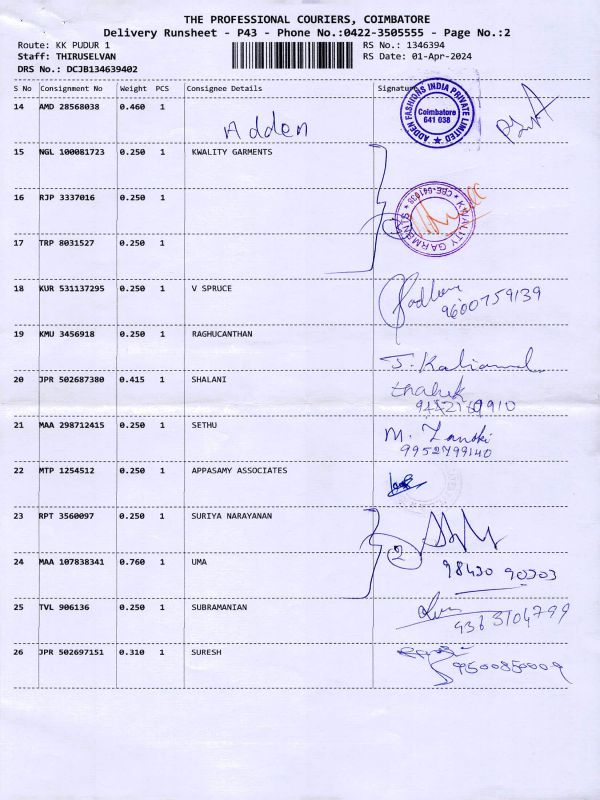 THE PROFESSIONAL COURIERS, COIMBATORE
Delivery Runsheet - P43 - Phone No.:0422-3505555 - Page No.:2
Route: KK PUDUR 1 RS No.: 1346394
Staff: THIRUSELVAN RS Date: 01-Apr-2024
DRS No.: DCJB134639402
S No Consignment No Weight PCS Consignee Details Signature
14 AMD 28568038 0.460 1
Adden
ADDEN FASHIONS INDIA PRIVATE LIMITED
Coimbatore
641 038
15 NGL 100081723 0.250 1 KWALITY GARMENTS
16 RJP 3337016 0.250 1
KWALITY GARMENTS CBE-641038
17 TRP 8031527 0.250 1
18 KUR 531137295 0.250 1 V SPRUCE
9600759139
19 KMU 3456918 0.250 1 RAGHUCANTHAN
20 JPR 502687380 0.415 1 SHALANI
21 MAA 298712415 0.250 1 SETHU
9952799140
22 MTP 1254512 0.250 1 APPASAMY ASSOCIATES
23 RPT 3560097 0.250 1 SURIYA NARAYANAN
2
24 MAA 107838341 0.760 1 UMA
98430 90303
25 TVL 906136 0.250 1 SUBRAMANIAN
9363104799
26 JPR 502697151 0.310 1 SURESH
9500850009